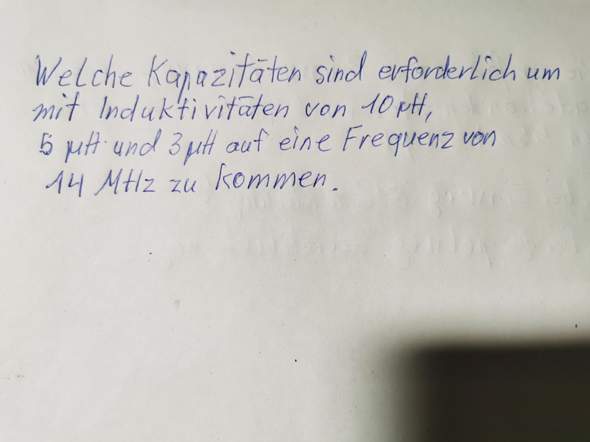 Welche Kapazitäten sind erforderlich um
mit Induktivitäten von 10 µH,
5 µH und 3 µH auf eine Frequenz von
14 MHz zu kommen.